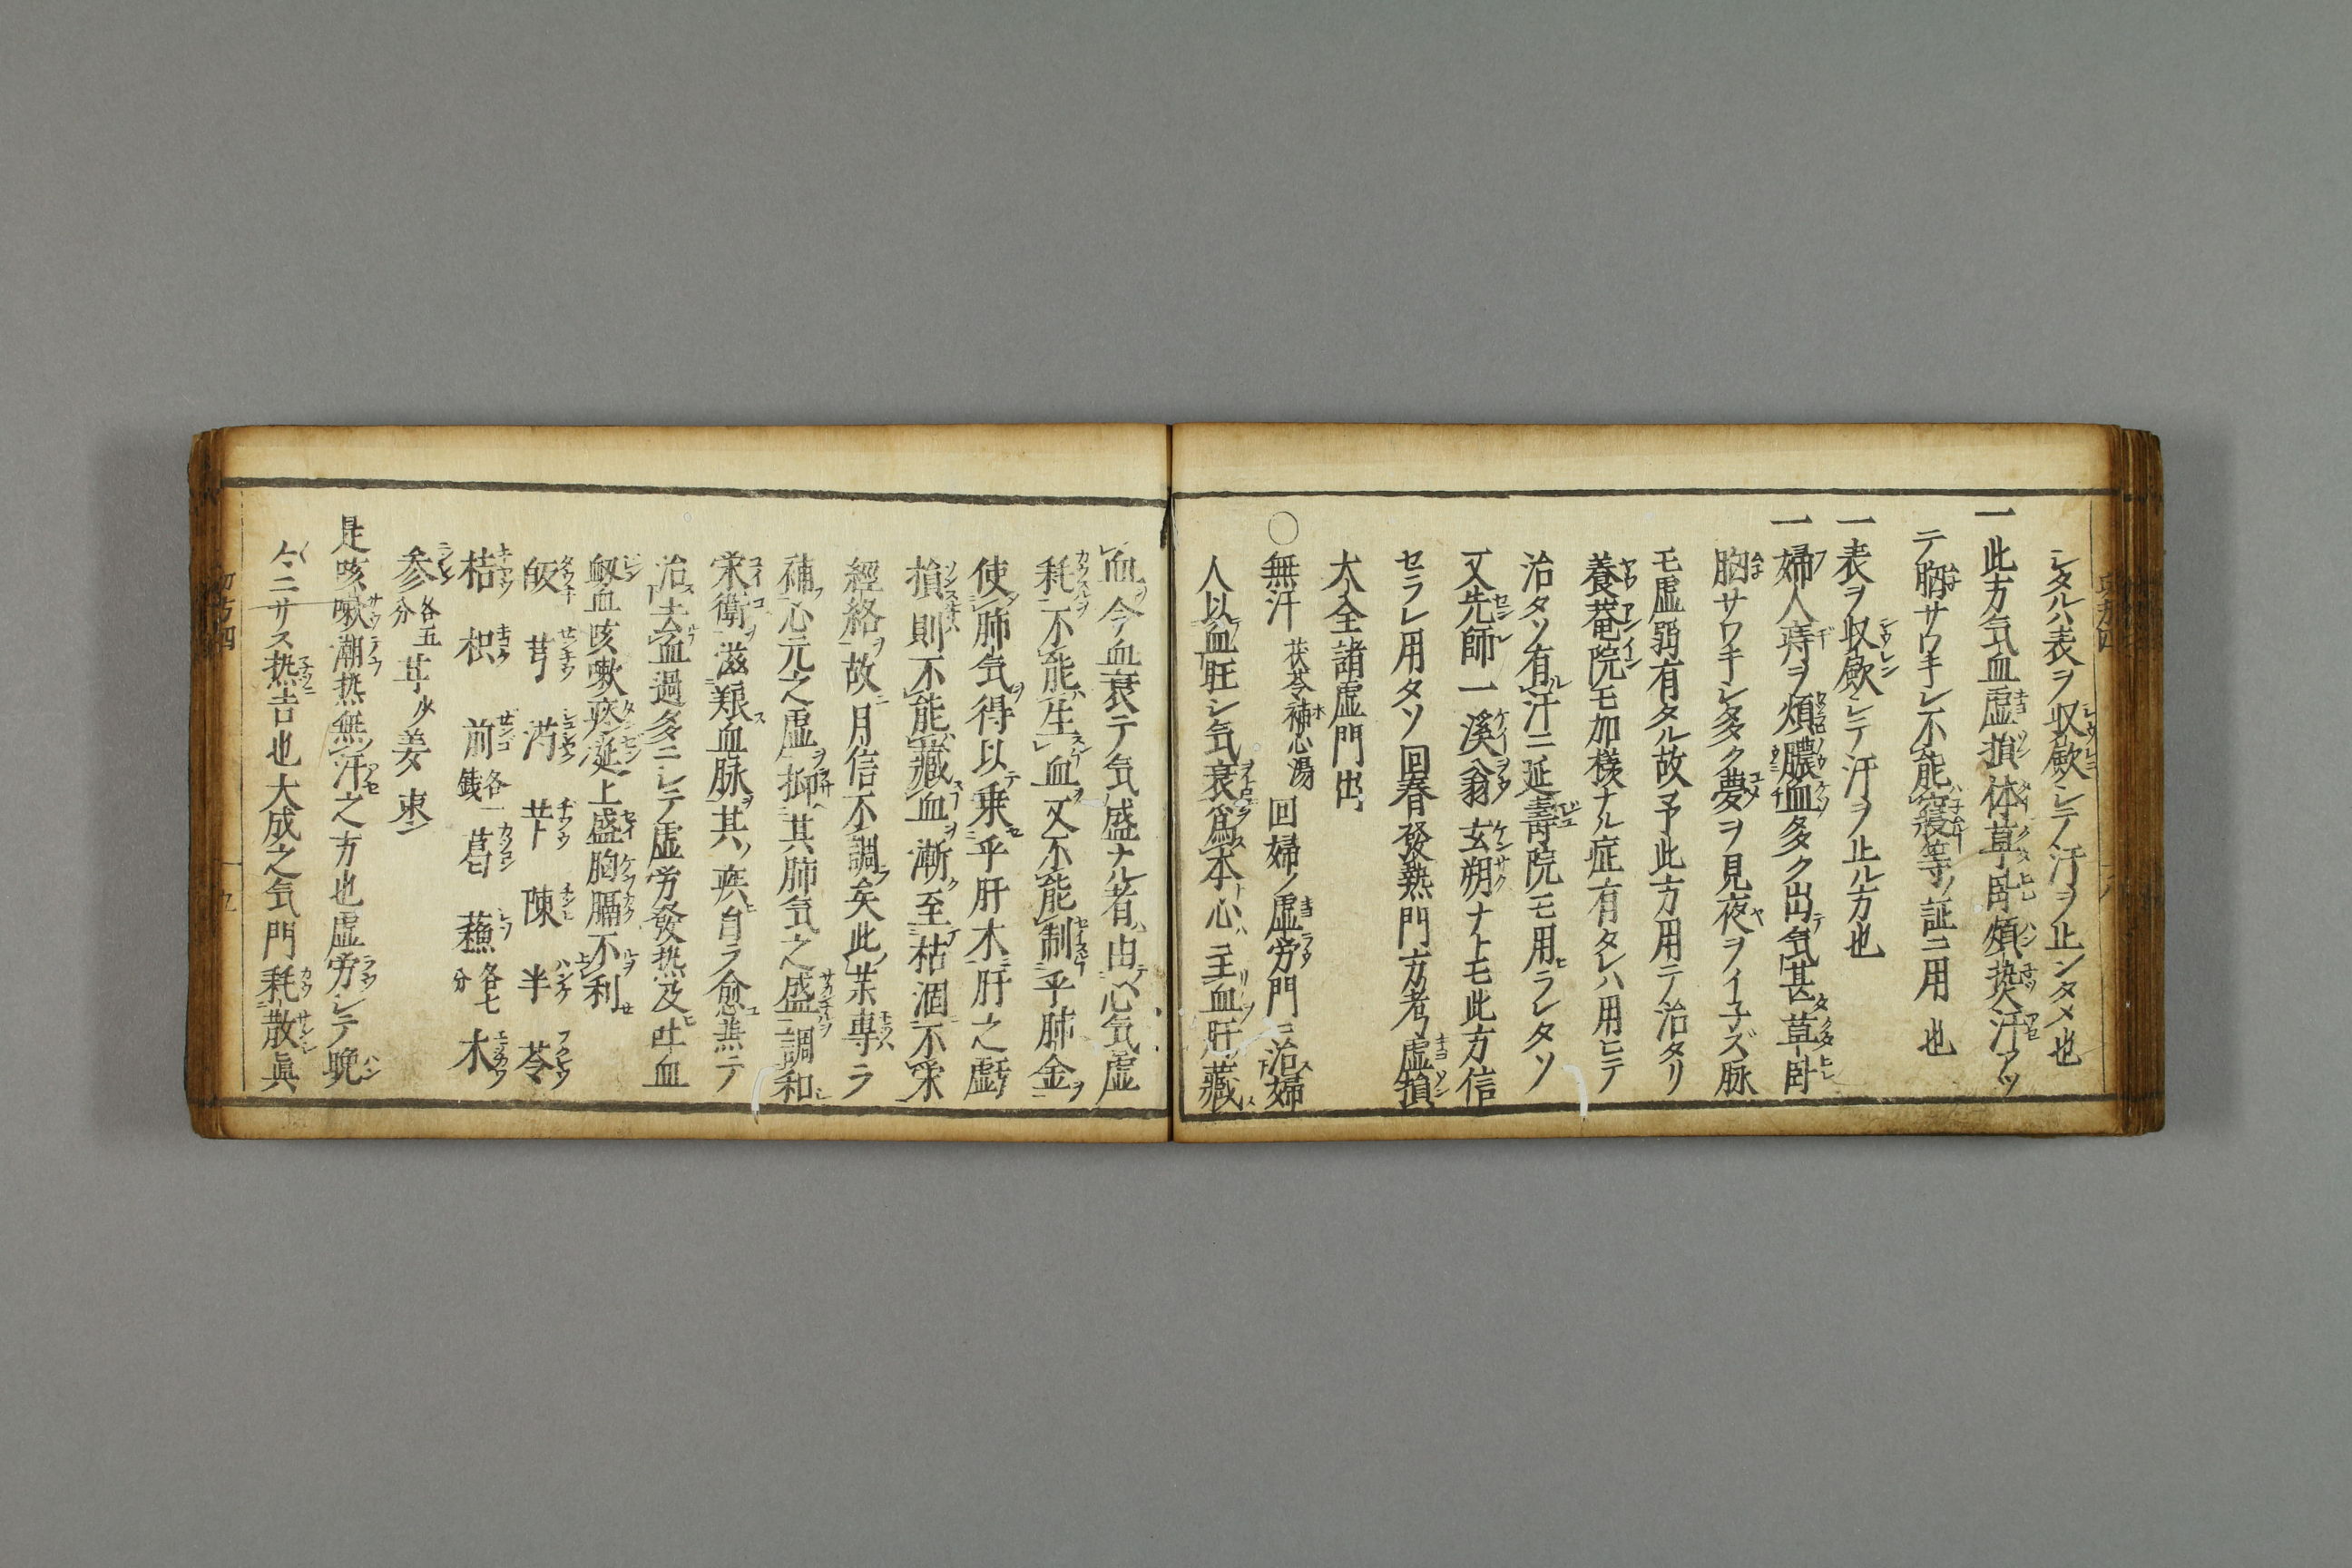 シタルハ表ヲ収斂シテ汗ヲ止ンタメ也
一此方気血虚損体草臥煩熱汗アツ
テ胸サワキシ不能寝等ノ証ニ用也
一表ヲ収斂シテ汗ヲ止ル方也
一婦人痔ヲ煩膿血多ク出気甚草臥
胸サワキシ多ク夢ヲ見夜ヲイ子ズ脉
モ虚弱有タル故予此方用テ治タリ
養菴院モ加様ナル症有タレハ用ヒテ
治タソ有汗ニ延壽院モ用ラレタソ
又先師一溪翁玄朔ナトモ此方信
セラレ用タソ回春發熱門方考虚損
大全諸虚門出
〇無汗 茯苓補心湯 回婦ノ虚労門ニ治婦
人以血旺シ気衰爲本心ハ主血肝藏
血今血衰テ気盛ナル者ハ由心気虚
耗不能生血又不能制乎肺金
使肺気得以乗乎肝木肝之
損則不能藏血漸至枯涸不栄
經絡故月信不調矣此茱專ラ
補心元之虚抑其肺気之盛調和
栄衛滋羪血脉其ノ疾自ラ愈燕テ
治去血過多ニシテ虚労發热及吐血
衂血咳嗽痰涎上盛胸膈不利
皈 芎 芍 芐 陳 半 苓
桔 枳 前各一銭 葛 蘓各七分 木
参各五分 甘少 姜 棗
是咳嗽潮热無汗之方也虚労シテ晩
今ニサス热吉也大成之気門耗散眞